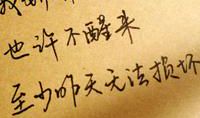 也许不醒来
至少昨天无法损坏